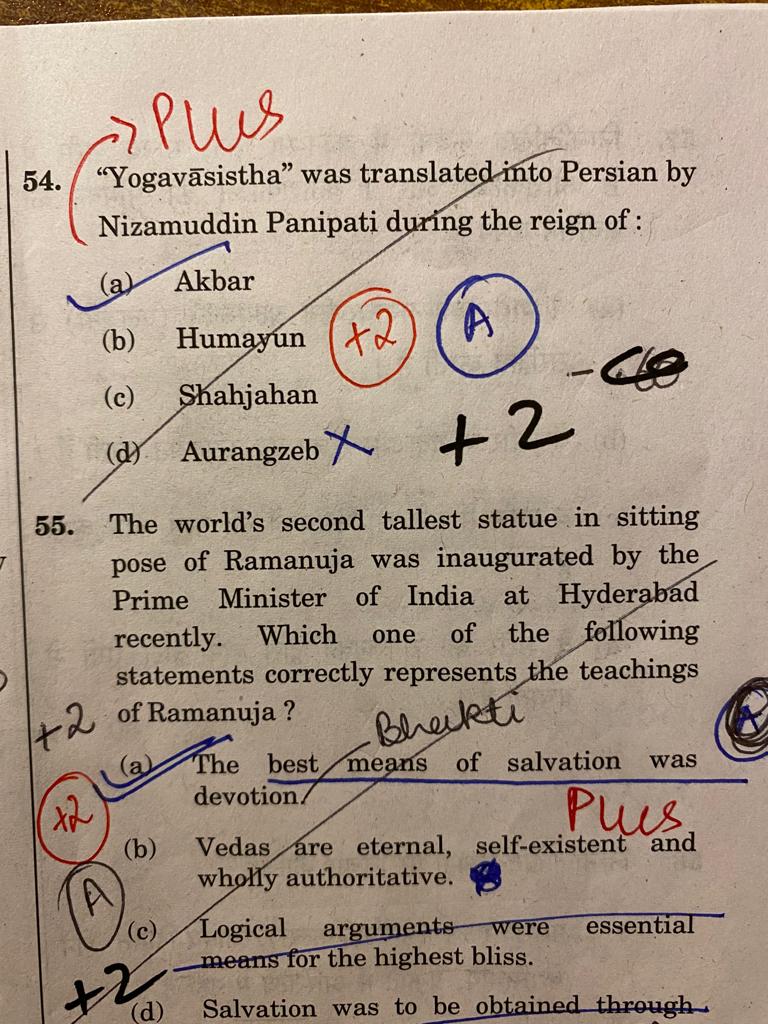 Plus
54. "Yogavāsistha" was translated into Persian by
Nizamuddin Panipati during the reign of :
(a) Akbar
(b) Humayun +2 A
(c) Shahjahan
(d) Aurangzeb × +2
55. The world's second tallest statue in sitting
pose of Ramanuja was inaugurated by the
Prime Minister of India at Hyderabad
recently. Which one of the following
statements correctly represents the teachings
+2 of Ramanuja ?
Bhakti
A
(a) The best means of salvation was
devotion.
+2
Plus
(b) Vedas are eternal, self-existent and
wholly authoritative.
A
(c) Logical arguments were essential
means for the highest bliss.
+2
(d) Salvation was to be obtained through